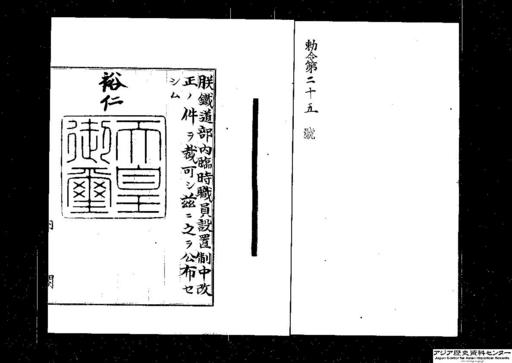 勅令第二十五號
朕鐵道部內臨時職員設置制中改
正ノ件ヲ裁可シ茲ニ之ヲ公布セ
シム
裕仁
天皇御璽
內閣
アジア歴史資料センター
Japan Center for Asian Historical Records